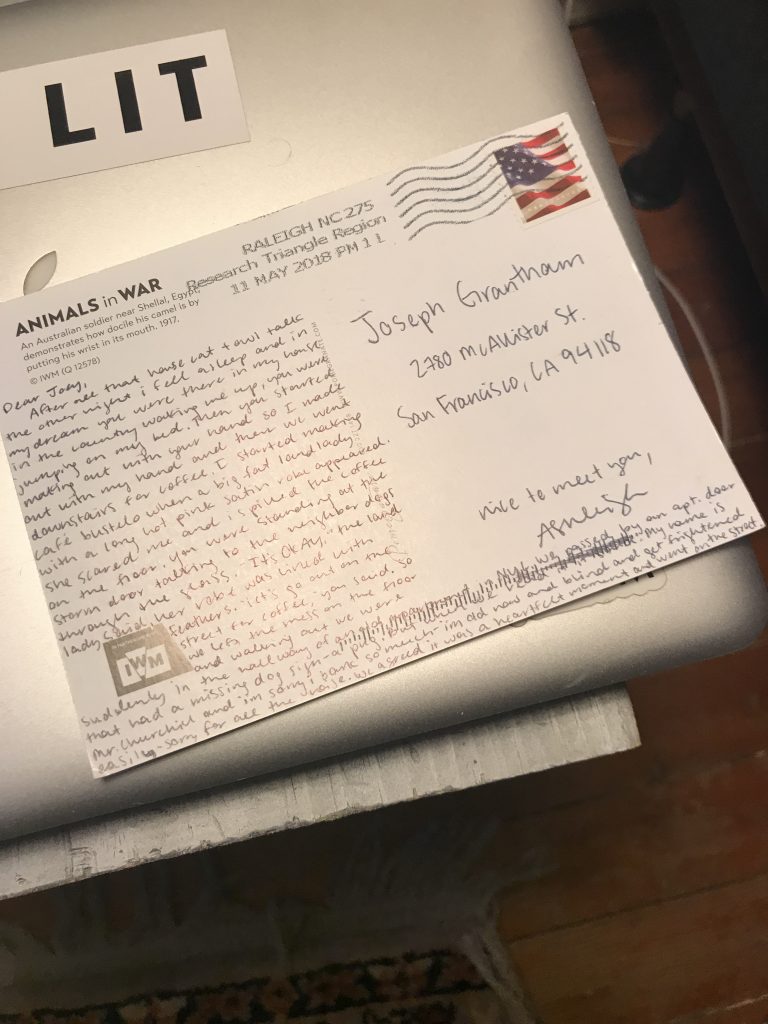 LIT
RALEIGH NC 275
Research Triangle Region
11 MAY 2018 PM 1 L
ANIMALS in WAR
An Australian soldier near Shellal, Egypt,
demonstrates how docile his camel is by
putting his wrist in its mouth, 1917.
© IWM (Q 12578)
Dear Joey,
After all that house cat + owl talk
the other night i fell asleep and in
my dream you were there in my house
in the country waking me up, you were
jumping on my bed. Then you started
making out with your hand so I made
out with my hand and then we went
downstairs for coffee. I started making
café bustelo when a big fat landlady
with a long hot pink satin robe appeared.
She scared me and i spilled the coffee
on the floor. You were standing at the
storm door talking to the neighbor dogs
through the glass. It's okay, the land
lady said, her robe was lined with
feathers. Let's go out on the
street for coffee, you said, so
we left the mess on the floor
and walking out we were
suddenly in the hallway of an old apartment in NYC. we passed by an apt. door
that had a missing dog sign - a pug, but there we read it: My name is
Mr. Churchill and i'm sorry i bark so much - im old now and blind and get frightened
easily - sorry for all the noise. we agreed it was a heartfelt moment and went on the street.
IWM
Joseph Grantham
2780 McAllister St.
San Francisco, CA 94118
nice to meet you,
Ashleigh